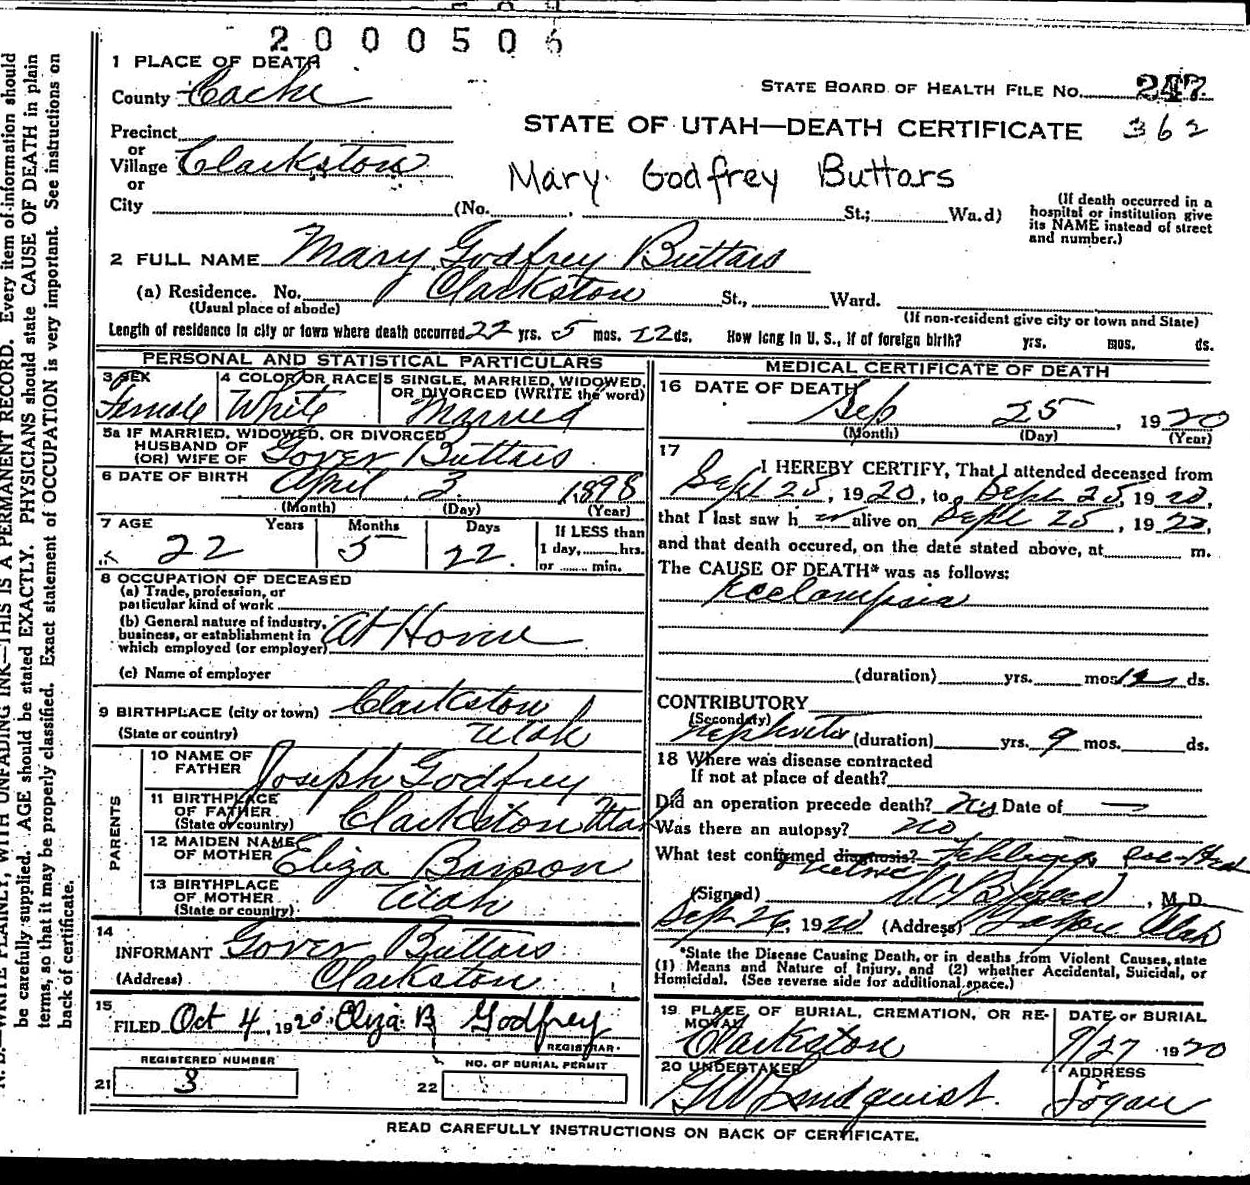 2000506
1 PLACE OF DEATH
County Cache
STATE BOARD OF HEALTH FILE No. 247
362
STATE OF UTAH—DEATH CERTIFICATE
Precinct
or
Village Clarkston
or
City (No. , St.; Wa.d)
Mary Godfrey Buttars
(If death occurred in a
hospital or institution give
its NAME instead of street
and number.)
2 FULL NAME Mary Godfrey Buttars
(a) Residence. No. Clarkston St., Ward.
(Usual place of abode)
(If non-resident give city or town and State)
Length of residence in city or town where death occurred 22 yrs. 5 mos. 22 ds. How long in U. S., if of foreign birth? yrs. mos. ds.
PERSONAL AND STATISTICAL PARTICULARS
3 SEX
Female
4 COLOR OR RACE
White
5 SINGLE, MARRIED, WIDOWED,
OR DIVORCED (WRITE the word)
Married
5a IF MARRIED, WIDOWED, OR DIVORCED
HUSBAND OF
(OR) WIFE OF Gover Buttars
6 DATE OF BIRTH April 3 1898
(Month) (Day) (Year)
7 AGE Years Months Days
22 5 22
If LESS than
1 day, hrs.
or min.
8 OCCUPATION OF DECEASED
(a) Trade, profession, or
particular kind of work
(b) General nature of industry,
business, or establishment in
which employed (or employer) At Home
(c) Name of employer
9 BIRTHPLACE (city or town) Clarkston
(State or country) Utah
PARENTS
10 NAME OF
FATHER Joseph Godfrey
11 BIRTHPLACE
OF FATHER
(State or country) Clarkston Utah
12 MAIDEN NAME
OF MOTHER Eliza
13 BIRTHPLACE
OF MOTHER
(State or country) Utah
14
INFORMANT Gover Buttars
(Address) Clarkston
15
FILED Oct 4, 1920. Eliza B Godfrey
REGISTRAR
REGISTERED NUMBER
21 3
NO. OF BURIAL PERMIT
22
MEDICAL CERTIFICATE OF DEATH
16 DATE OF DEATH Sep 25, 1920
(Month) (Day) (Year)
17
I HEREBY CERTIFY, That I attended deceased from
Sept 25, 1920, to Sept 25, 1920,
that I last saw her alive on Sept 25, 1920,
and that death occured, on the date stated above, at m.
The CAUSE OF DEATH* was as follows:
Ecclampsia
(duration) yrs. mos. ds.
CONTRIBUTORY
(Secondary)
Nephritis (duration) yrs. 9 mos. ds.
18 Where was disease contracted
If not at place of death?
Did an operation precede death? Date of —
Was there an autopsy? no
What test confirmed diagnosis?
(Signed) , M.D.
Sept 26, 1920 (Address) Logan Utah
*State the Disease Causing Death, or in deaths from Violent Causes, state
(1) Means and Nature of Injury, and (2) whether Accidental, Suicidal, or
Homicidal. (See reverse side for additional space.)
19 PLACE OF BURIAL, CREMATION, OR RE-
MOVAL
Clarkston
DATE OF BURIAL
9/27 1920
20 UNDERTAKER
GW Lindquist.
ADDRESS
Logan
READ CAREFULLY INSTRUCTIONS ON BACK OF CERTIFICATE.
WRITE PLAINLY, WITH UNFADING INK—THIS IS A PERMANENT RECORD. Every item of information should
be carefully supplied. AGE should be stated EXACTLY. PHYSICIANS should state CAUSE OF DEATH in plain
terms, so that it may be properly classified. Exact statement of OCCUPATION is very important. See instructions on
back of certificate.